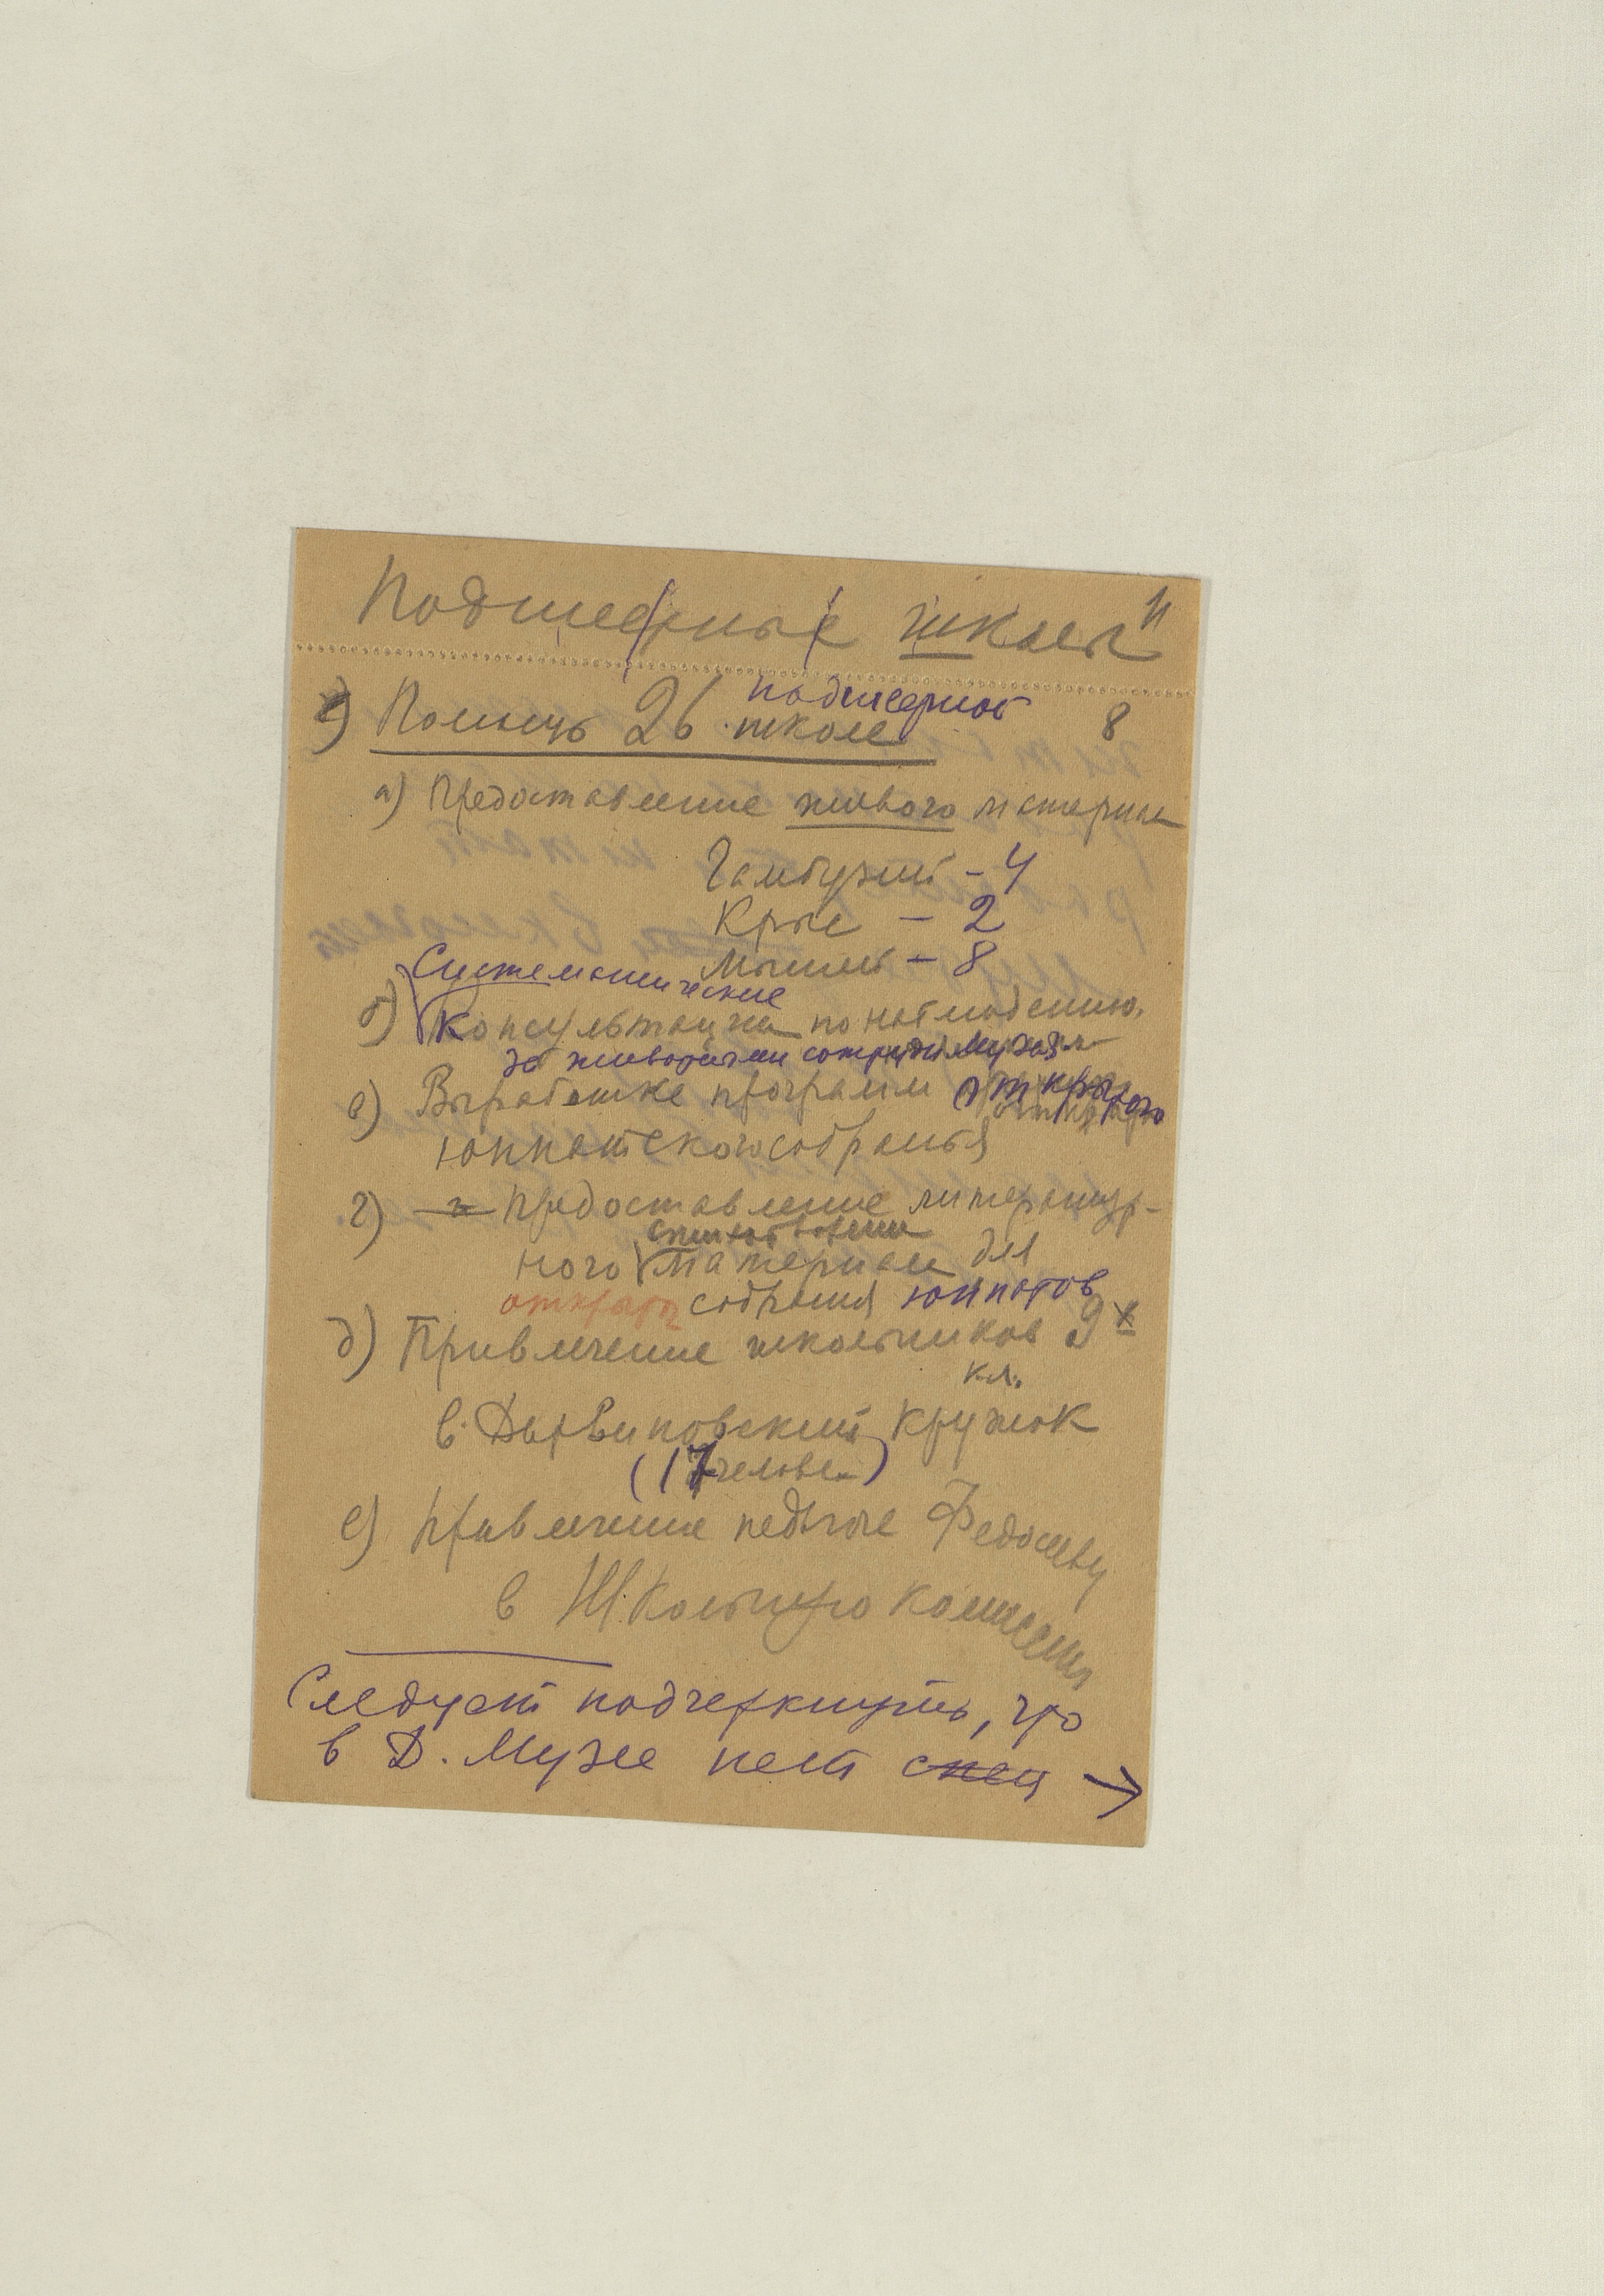 Подшефные школы
Помощь 26 школе подшефной 8
а) Предоставление живого материала
Гамбузий - 4
Крыс - 2
Мышей - 8
Систематические
б) Консультации по наблюдению
за животными сотрудн. Музея
в) Выработке программ открытого
юннатского собрания
г) Предоставление литератур-
ного материала для
открыт собрания юннатов
д) Привлечение школьников 9х
кл.
в Дарвиновский кружок
(17 человек)
е) Привлечение педагога Федосееву
в Школьную комиссию
Следует подчеркнуть, что
в Д. Музее нет →